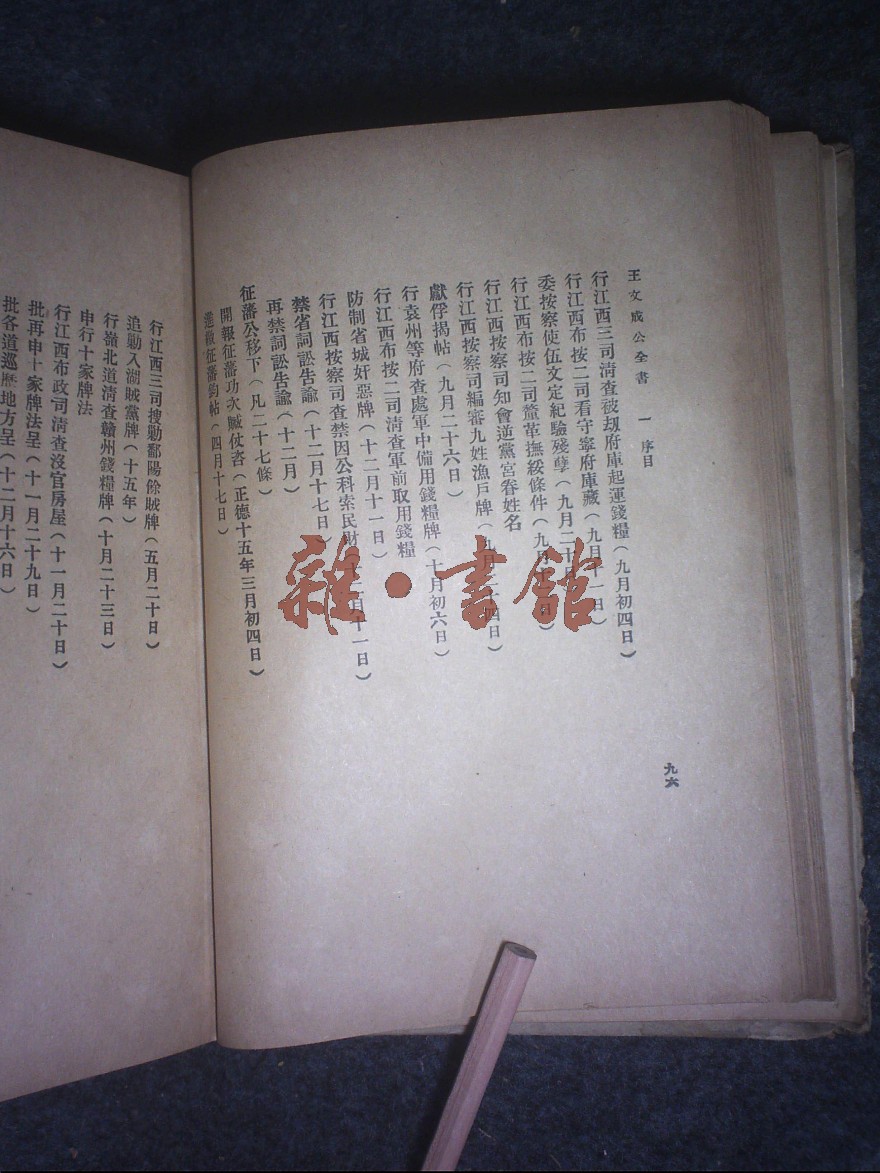 王文成公全書 一 序目
行江西三司清查被刼府庫起運錢糧(九月初四日)
行江西布按二司看守寧府庫藏(九月十一日)
委按察使伍文定紀驗殘孽(九月二十日
行江西布按二司釐革撫綏條件(九月 日)
行江西按察司知會逆黨宮眷姓名
行江西按察司編審九姓漁戶牌(九月二十四日)
獻俘揭帖(九月二十六日)
行袁州等府查處軍中備用錢糧牌(十月初六日)
行江西布按二司清查軍前取用錢糧
防制省城奸惡牌(十二月十一日)
行江西按察司查禁因公科索民財(十二月十一日)
禁省詞訟告諭(十二月十七日)
再禁詞訟告諭(十二月)
征藩公移下(凡二十七條)
開報征藩功次贓仗咨(正德十五年三月初四日)
進繳征藩鈞帖(四月十七日)
九六
行江西三司搜剿鄱陽餘賊牌(五月二十日)
追剿入湖賊黨牌(十五年)
行嶺北道清查贛州錢糧牌(十月二十三日)
申行十家牌法
行江西布政司清查沒官房屋(十一月二十日)
批再申十家牌法呈(十一月二十九日)
批各道巡歷地方呈(十二月十六日)
雜·書館